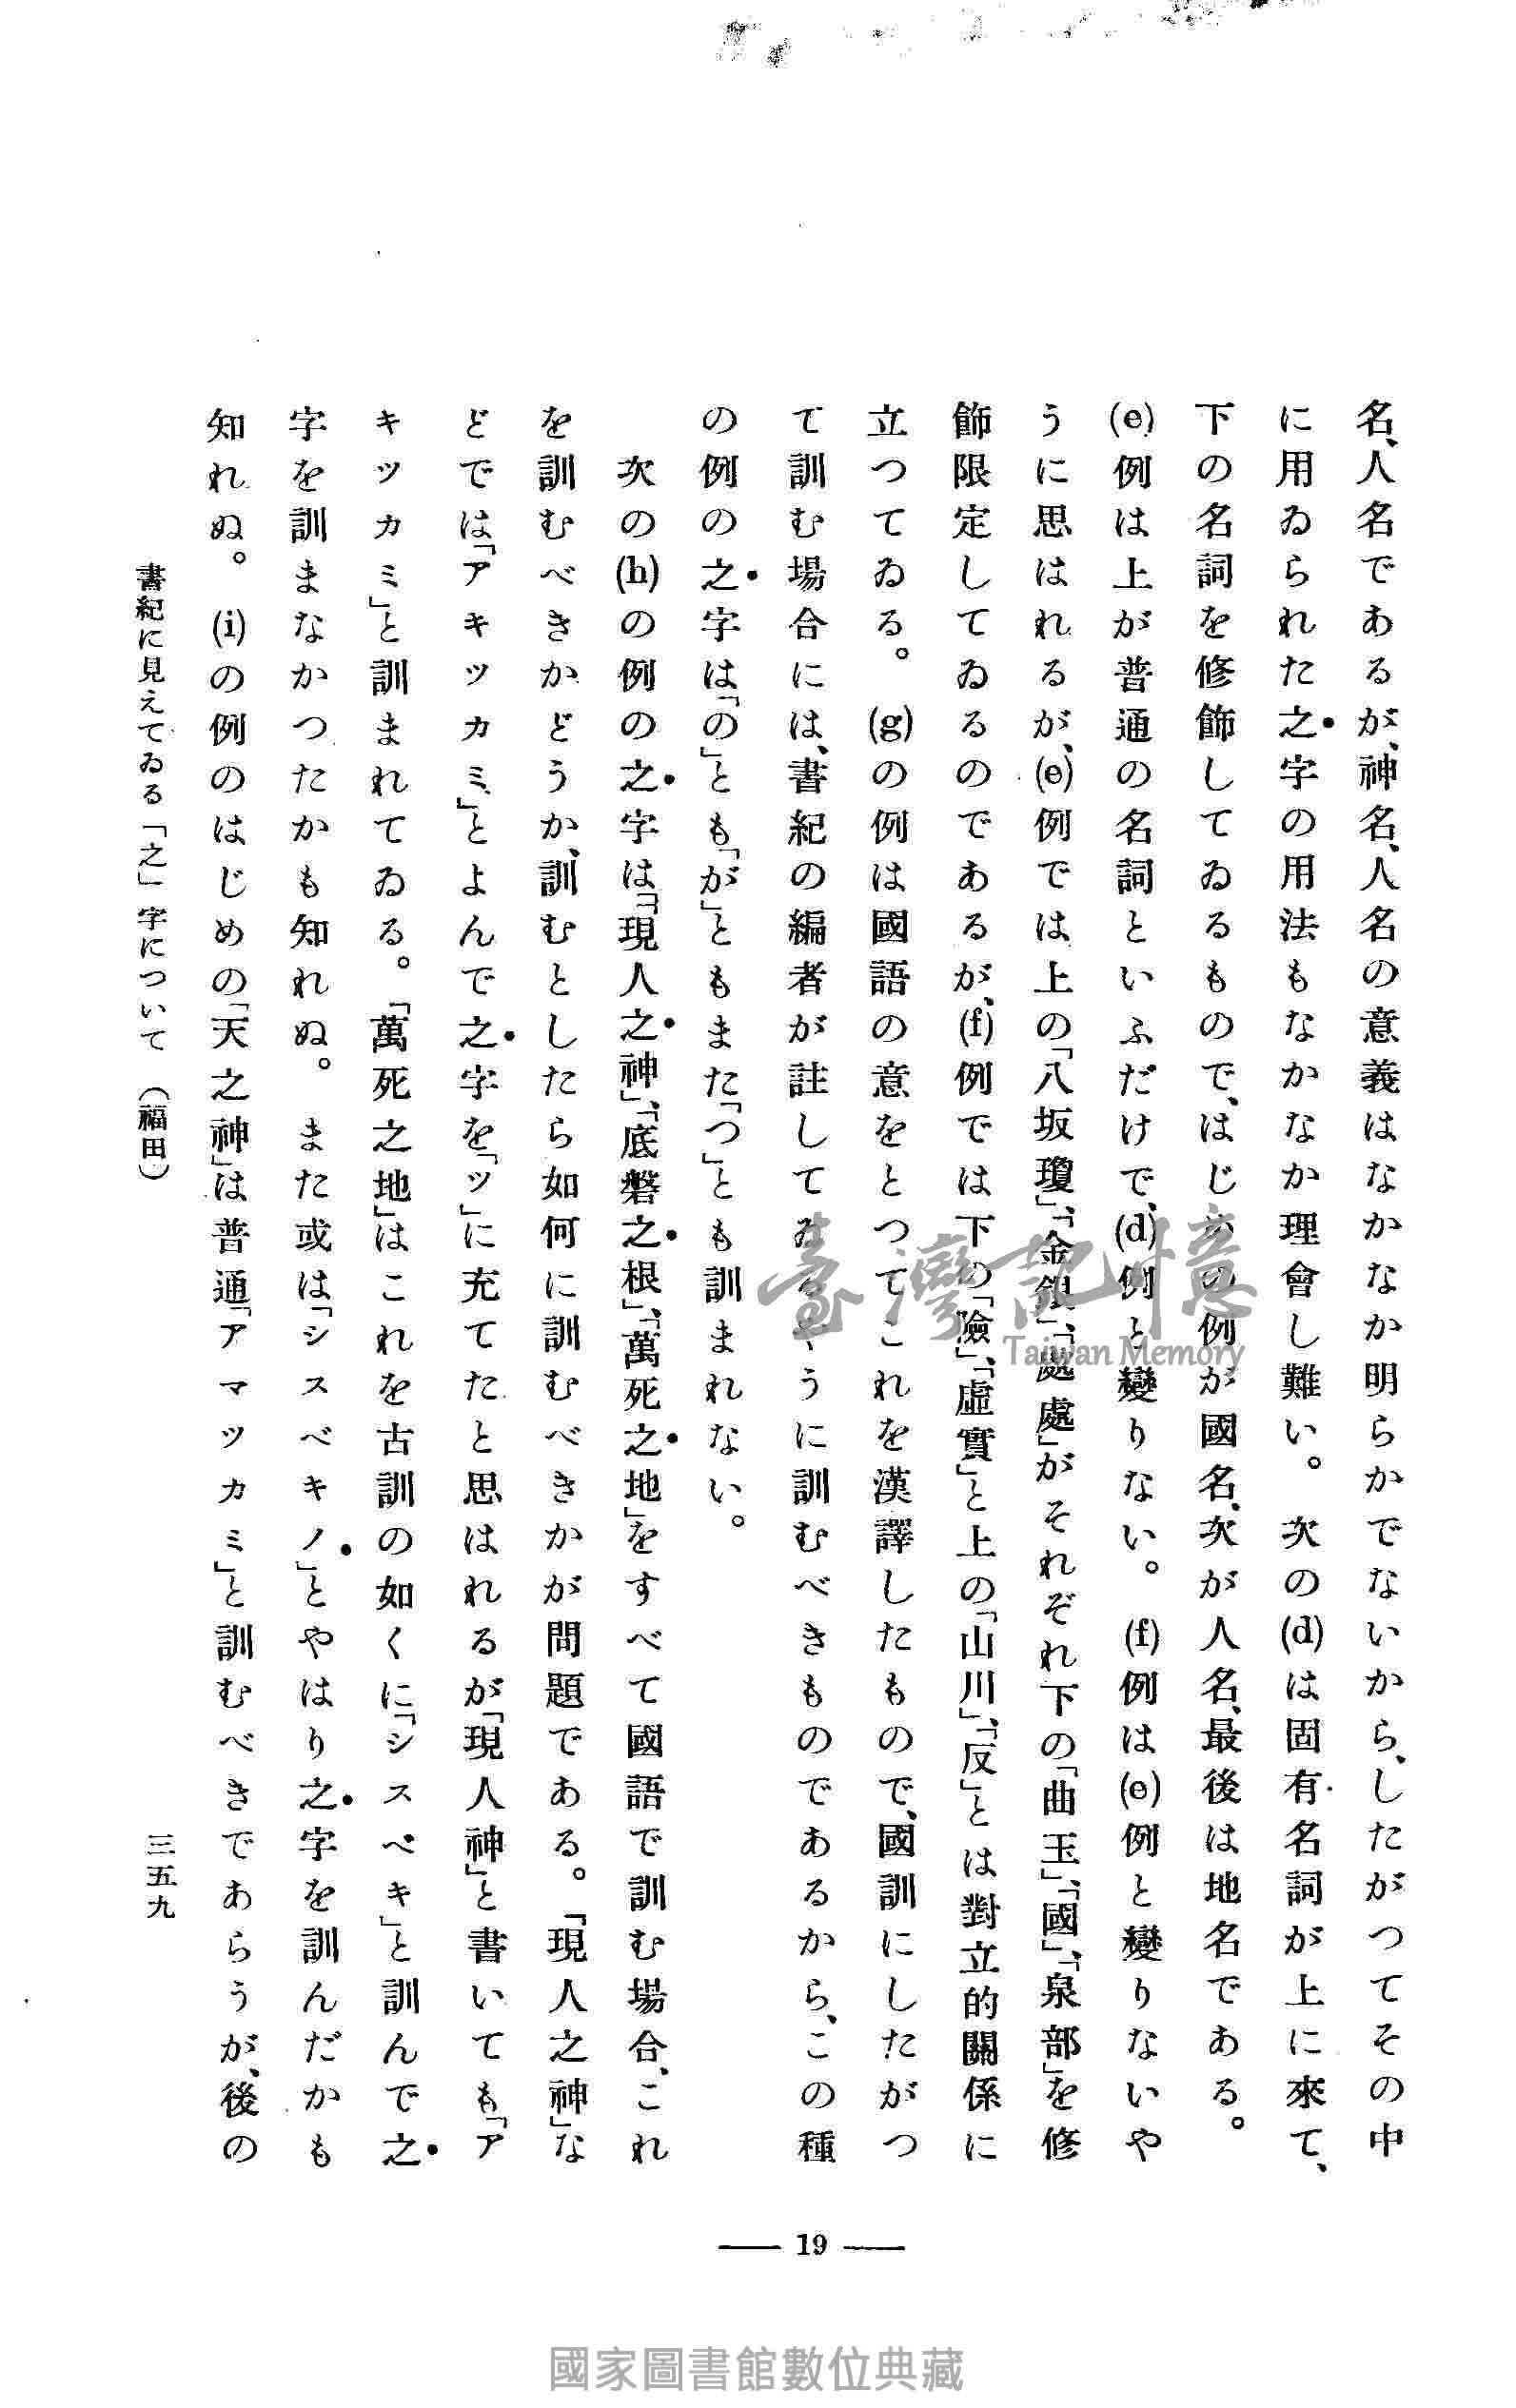 名、人名であるが、神名、人名の意義はなかなか明らかでないから、したがつてその中
に用ゐられた之字の用法もなかなか理會し難い。　次の(d)は固有名詞が上に來て、
下の名詞を修飾してゐるもので、はじめの例が國名、次が人名、最後は地名である。
(e)例は上が普通の名詞といふだけで、(d)例と變りない。　(f)例は(e)例と變りないや
うに思はれるが、(e)例では上の「八坂瓊」、「金銀」、「處處」がそれぞれ下の「曲玉」、「國」、「泉部」を修
飾限定してゐるのであるが、(f)例では下の「險」、「虛實」と上の「山川」、「反」とは對立的關係に
立つてゐる。　(g)の例は國語の意をとつてこれを漢譯したもので、國訓にしたがつ
て訓む場合には、書紀の編者が註してゐるやうに訓むべきものであるから、この種
の例の之字は「の」とも「が」ともまた「つ」とも訓まれない。
　次の(h)の例の之字は、「現人之神」、「底磐之根」、「萬死之地」をすべて國語で訓む場合、これ
を訓むべきかどうか、訓むとしたら如何に訓むべきかが問題である。「現人之神」な
どでは「アキツカミ」とよんで之字を「ツ」に充てたと思はれるが「現人神」と書いても「ア
キツカミ」と訓まれてゐる。「萬死之地」はこれを古訓の如くに「シスベキ」と訓んで之
字を訓まなかつたかも知れぬ。　また或は「シスベキノ」とやはり之字を訓んだかも
知れぬ。　(i)の例のはじめの「天之神」は普通「アマツカミ」と訓むべきであらうが、後の
書紀に見えてゐる「之」字について　（福田）
三五九
19
臺灣記憶
Taiwan Memory
國家圖書館數位典藏